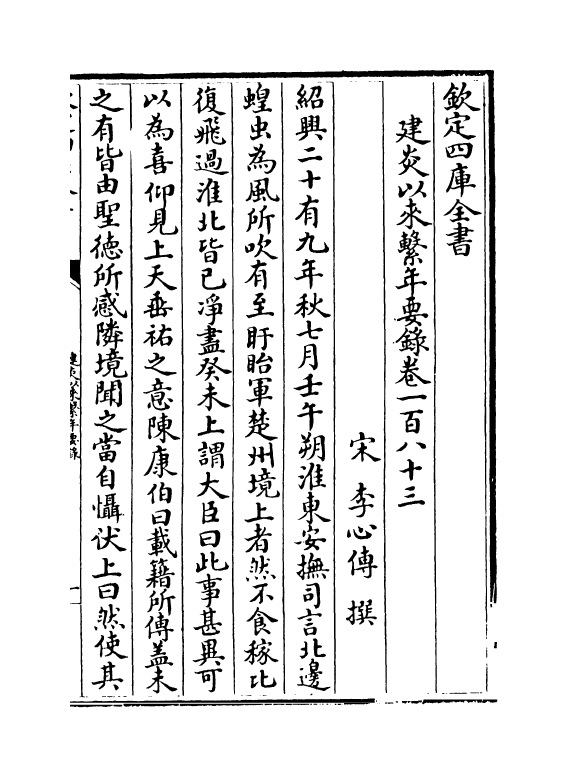 欽定四庫全書
建炎以來繫年要錄卷一百八十三
宋 李心傳 撰
紹興二十有九年秋七月壬午朔淮東安撫司言北邊
蝗虫為風所吹有至盱眙軍楚州境上者然不食稼比
復飛過淮北皆已凈盡癸未上謂大臣曰此事甚異可
以為喜仰見上天垂祐之意陳康伯曰載籍所傳蓋未
之有皆由聖德所感隣境聞之當自懾伏上曰然使其
建炎以來繫年要錄
一